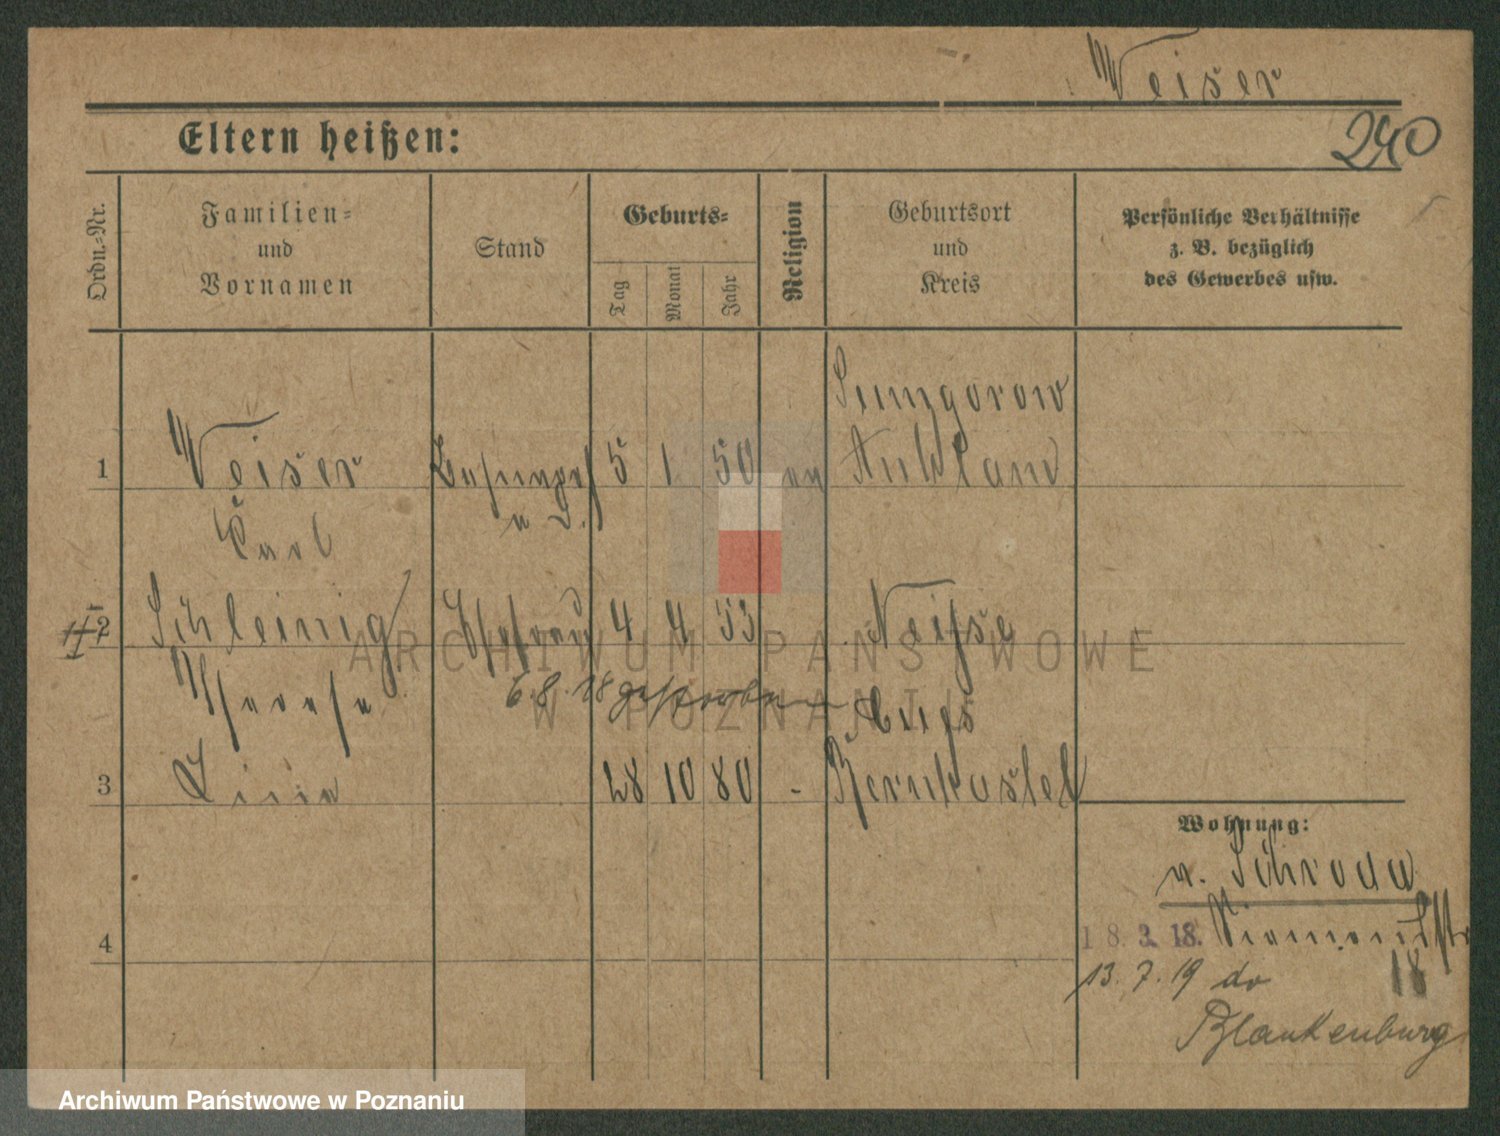 Weiser
240
Eltern heißen:
Ordn.-Nr.
Familien-
und
Vornamen
Stand
Geburts-
Tag
Monat
Jahr
Religion
Geburtsort
und
Kreis
Persönliche Verhältnisse
z. B. bezüglich
des Gewerbes usw.
1
Weiser
Carl
5 1 50
ev
Rußland
2
Schleinig
Therese
Ehefrau
4 4 53
Neisse
6.8.18 gestorben
3
28 10 80
-
Bernkastel
Wohnung:
v. Schroda
18. 3. 18.
18
13. 7. 19
Blankenburg
4
ARCHIWUM PAŃSTWOWE
W POZNANIU
Archiwum Państwowe w Poznaniu